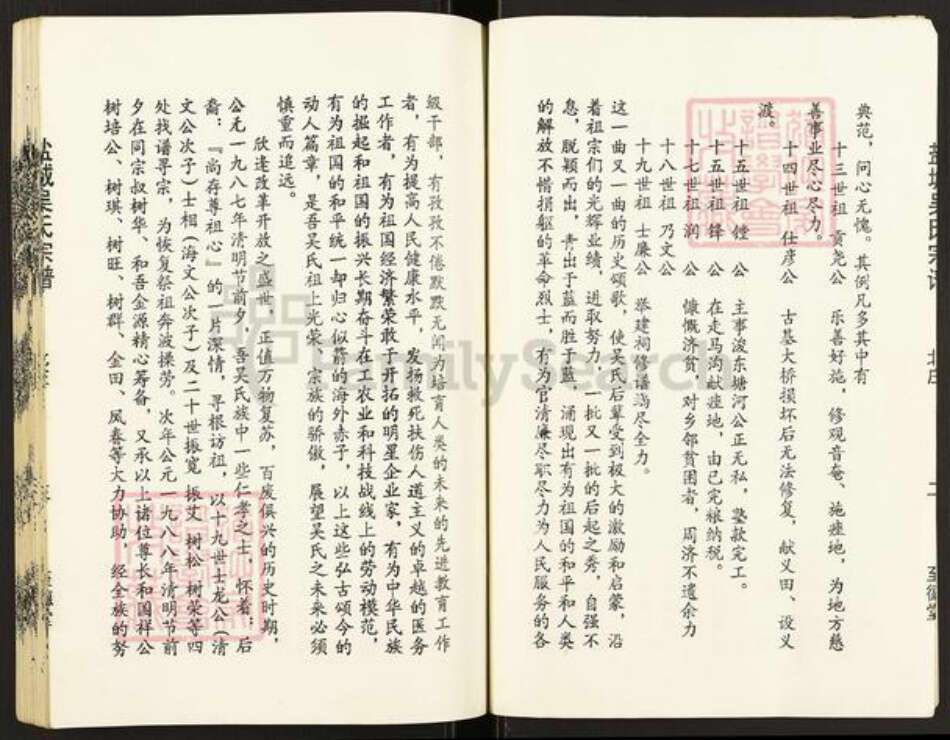 典范，问心无愧。其例凡多其中有
十三世祖 贡尧公 乐善好施，修观音奄、施痊地，为地方慈
善事业尽心尽力。
十四世祖 仕彦公 古基大桥损坏后无法修复，献义田、设义
渡。
十五世祖 镗 公 主事浚东塘河公正无私，垫款完工。
十五世祖 锋 公 在走马沟献痊地，由已完粮纳税。
十七世祖 润 公 慷慨济贫，对乡邻贫困者，周济不遗余力
十八世祖 乃文公
十九世祖 士廉公 举建祠修谱竭尽全力。
这一曲又一曲的历史颂歌，使吴氏后辈受到极大的激励和启蒙，沿
着祖宗们的光辉业绩，进取努力，一批又一批的后起之秀，自强不
息，脱颖而出，青出于蓝而胜于蓝，涌现出有为祖国的和平和人类
的解放不惜捐躯的革命烈士，有为官清廉尽职尽力为人民服务的各
级干部，有孜孜不倦默默无闻为培育人类的未来的先进教育工作
者，有为提高人民健康水平，发扬救死扶伤人道主义的卓越的医务
工作者，有为祖国经济繁荣敢于开拓的明星企业家，有为中华民族
的掘起和祖国的振兴长期奋斗在工农业和科技战线上的劳动模范，
有为祖国的和平统一却归心似箭的海外赤子，以上这些弘古颂今的
动人篇章，是吾吴氏祖上光荣，宗族的骄傲，展望吴氏之未来必须
慎重而追远。
欣逢改革开放之盛世，正值万物复苏，百废俱兴的历史时期，
公元一九八七年清明节前夕，吾吴氏族中一些仁孝之士，怀着：后
裔：『尚存尊祖心』的一片深情，寻根访祖，以十九世士龙公（清
文公次子）士相（海文公次子）及二十世振宽 振艾 树松 树荣等四
处找谱寻宗，为恢复祭祖奔波操劳。次年公元一九八八年清明节前
夕在同宗叔树华、和吾金源精心筹备，又承以上诸位尊长和国祥公
树培公、树琪、树旺、树群、金田、凤春等大力协助 经全族的努
盐城吴氏宗谱
至德堂